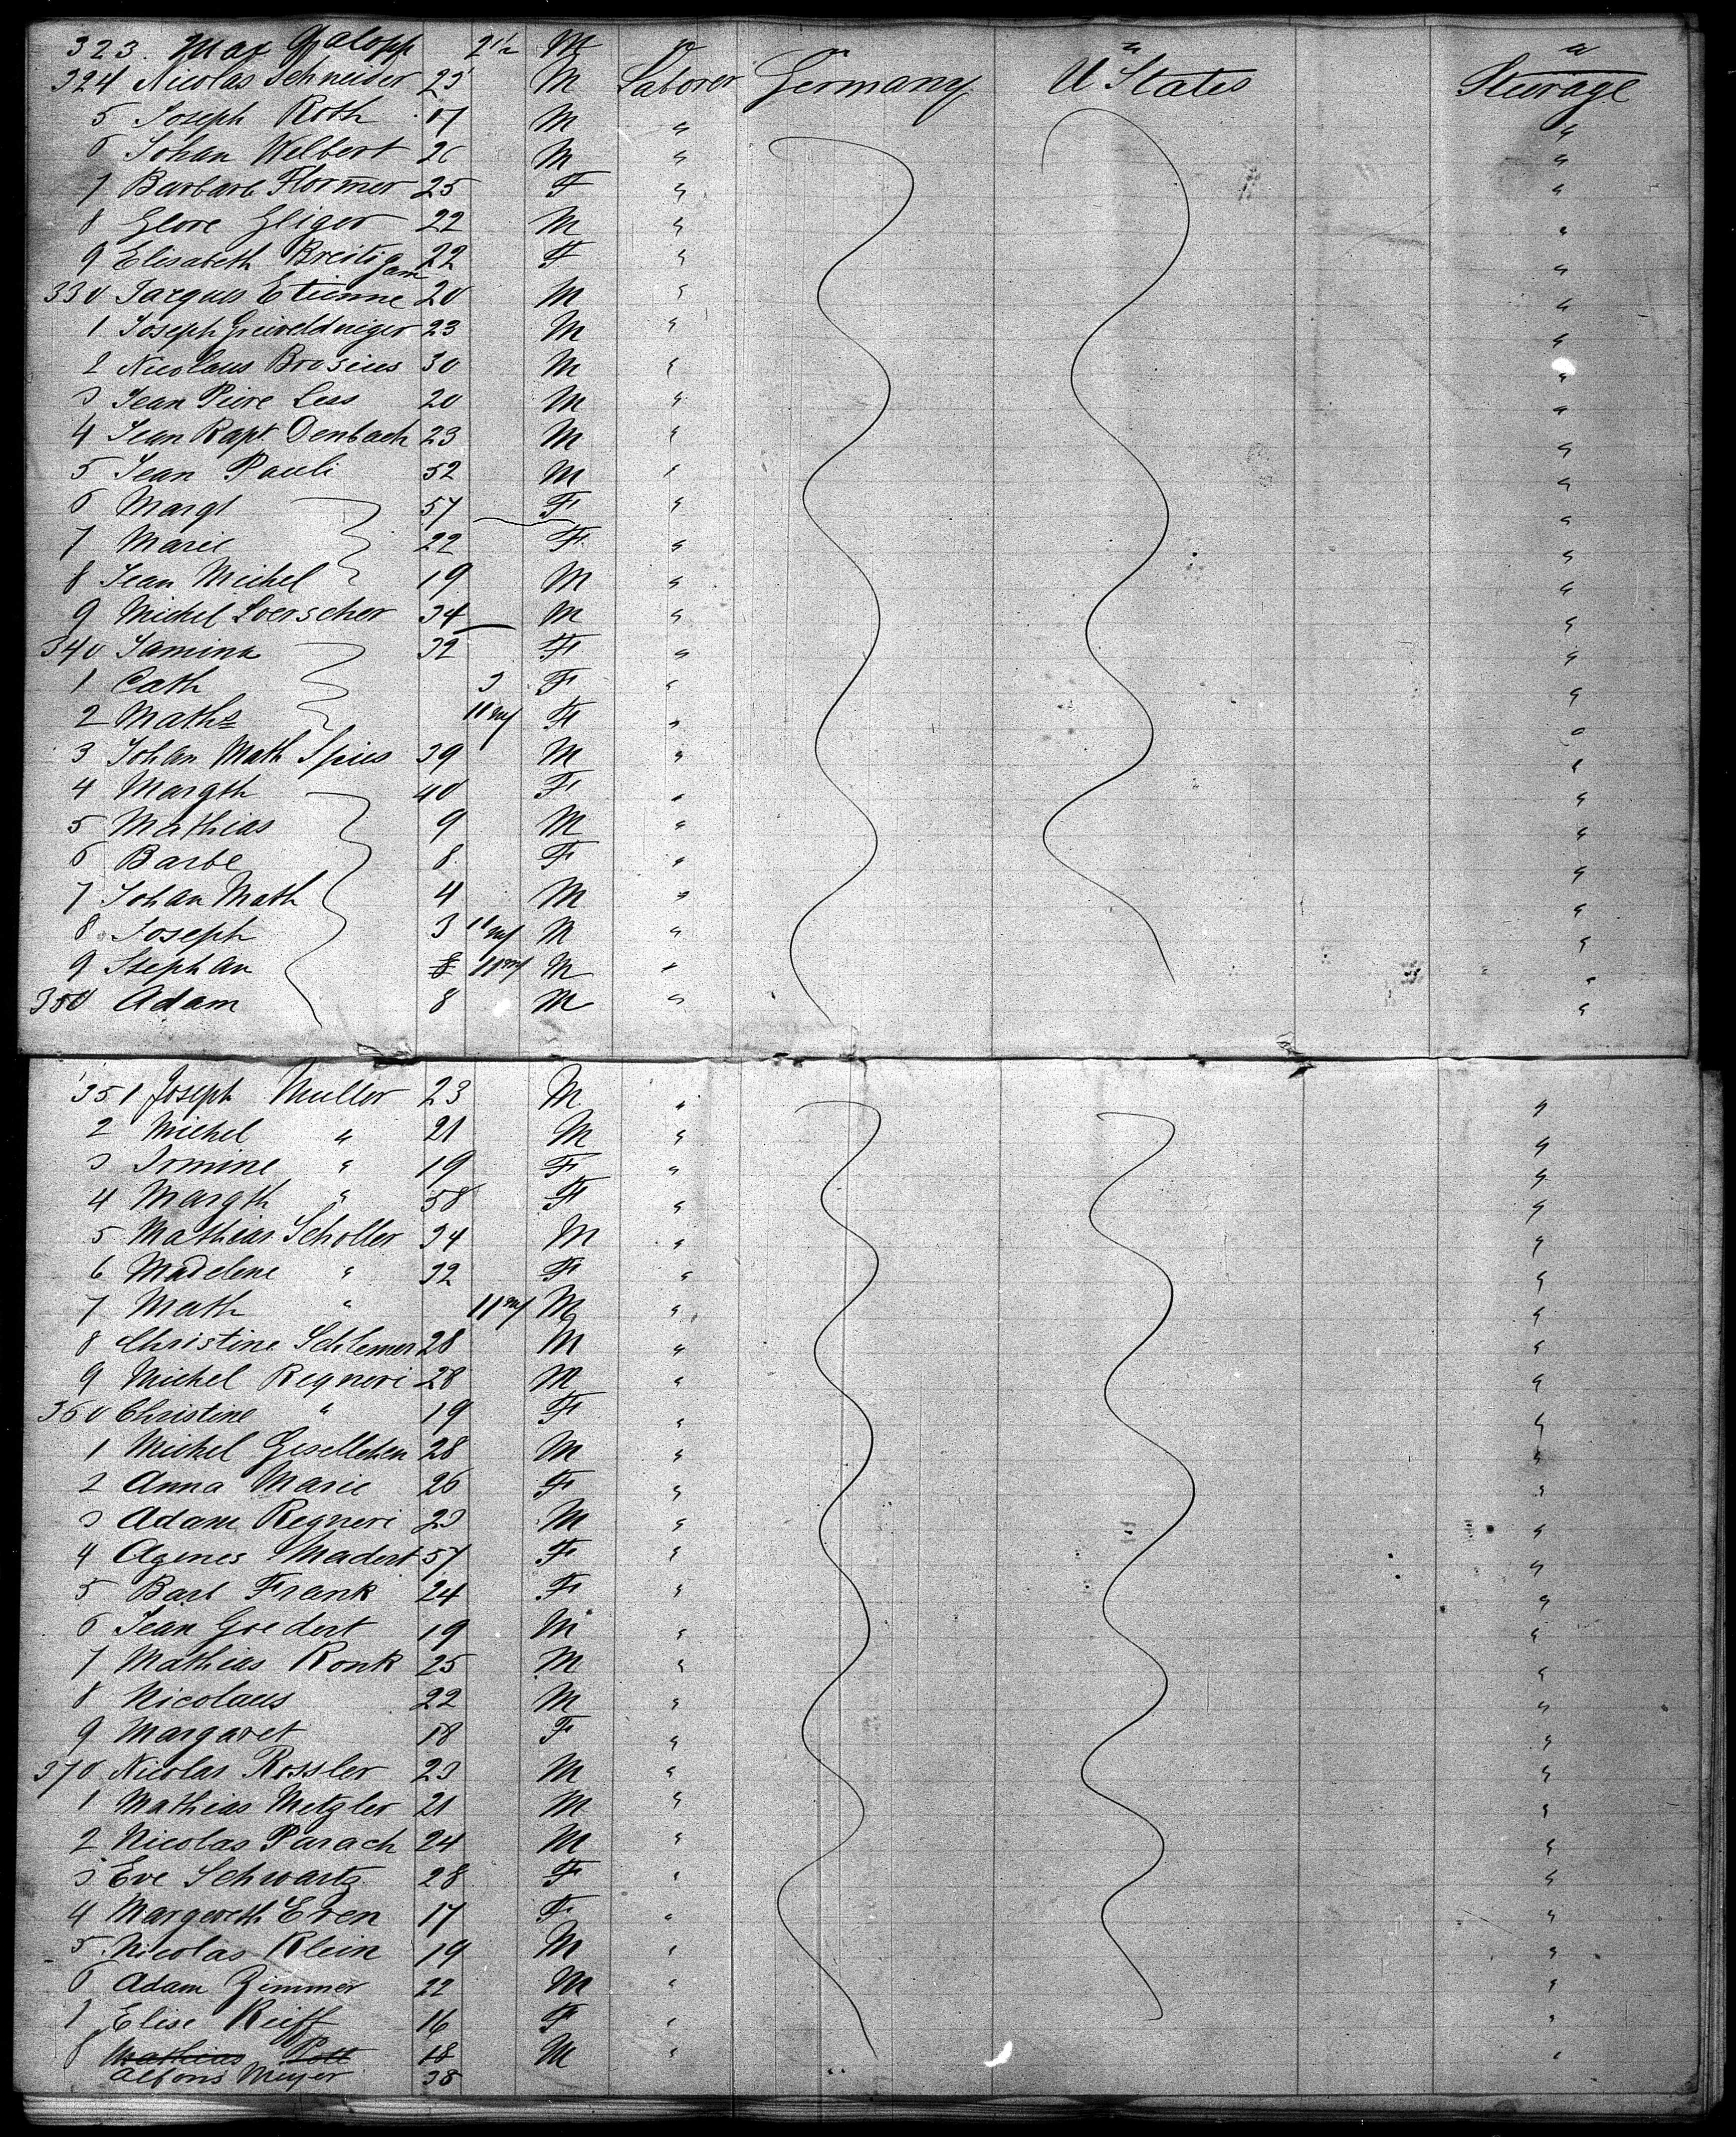 323. Max Galopp 2 1/2 M " " " "
324 Nicolas Schneider 23 M Laborer Germany U States Steerage
5 Joseph Roth 17 M " "
6 Johan Welbert 26 M " "
7 Barbara Flormer 25 F " "
8 Geore Gliger 22 M " "
9 Elisabeth Breitigam 22 F " "
330 Jacques Etienne 20 M " "
1 Joseph Greiveldinger 23 M " "
2 Nicolaus Brosius 30 M " "
3 Jean Piere Less 20 M " "
4 Jean Bapt. Denbach 23 M " "
5 Jean Pauli 52 M " "
6 Margt 57 F " "
7 Marie 22 F " "
8 Jean Michel 19 M " "
9 Michel Loerscher 34 M " "
340 Jamina 32 F " "
1 Cath 3 F " "
2 Maths 11 m/ F " "
3 Johan Math Spies 39 M " "
4 Margth 40 F " "
5 Mathias 9 M " "
6 Barbe 8 F " "
7 Johan Math 4 M " "
8 Joseph 3 11 m/ M " "
9 Stephan 11 m/ M " "
350 Adam 8 M " "
351 Joseph Muller 23 M " "
2 Michel " 21 M " "
3 Irmine " 19 F " "
4 Margth " 58 F " "
5 Mathias Scholler 34 M " "
6 Madelene " 32 F " "
7 Math " 11 m/ M " "
8 Christine Schlemer 28 M " "
9 Michel Regneri 28 M " "
360 Christine " 19 F " "
1 Michel Geselleken 28 M " "
2 Anna Marie 26 F " "
3 Adam Regneri 23 M " "
4 Agenes Madert 57 F " "
5 Barb Frank 24 F " "
6 Jean Goedert 19 M " "
7 Mathias Ronk 25 M " "
8 Nicolaus 22 M " "
9 Margaret 18 F " "
370 Nicolas Rossler 23 M " "
1 Mathias Metzler 21 M " "
2 Nicolas Parach 24 M " "
3 Eve Schwartz 28 F " "
4 Margereth Even 17 F " "
5 Nicolas Klein 19 M " "
6 Adam Zimmer 22 M " "
7 Elise Reiff 16 F " "
8 Mathias Pott 18 M " "
Alfons Meyer 38